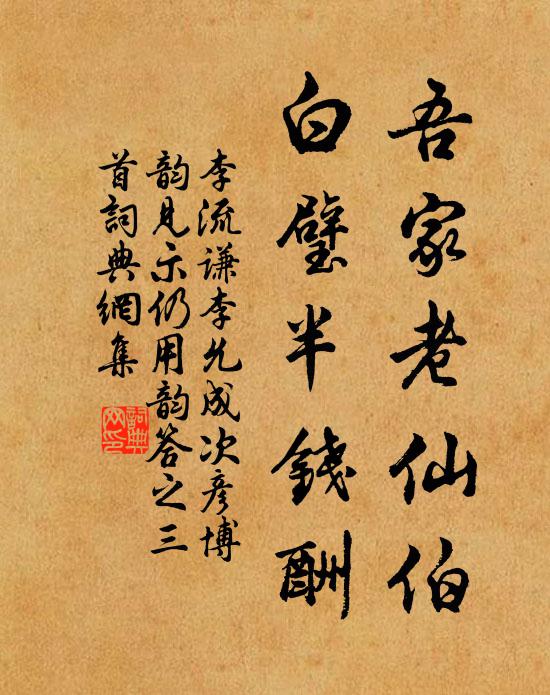 吾家老仙伯
白璧半錢酬
李流谦李允成次彦博
韵見示仍用韵答之三
首詞典網集
詞典网印